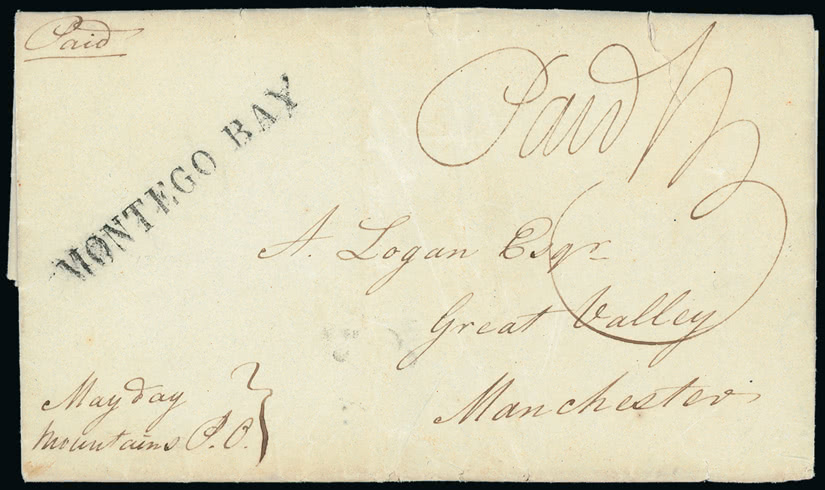 Paid
MONTEGO BAY
Paid
A. Logan Esqr
Great Valley
Manchester
May day
Mountains P.O.